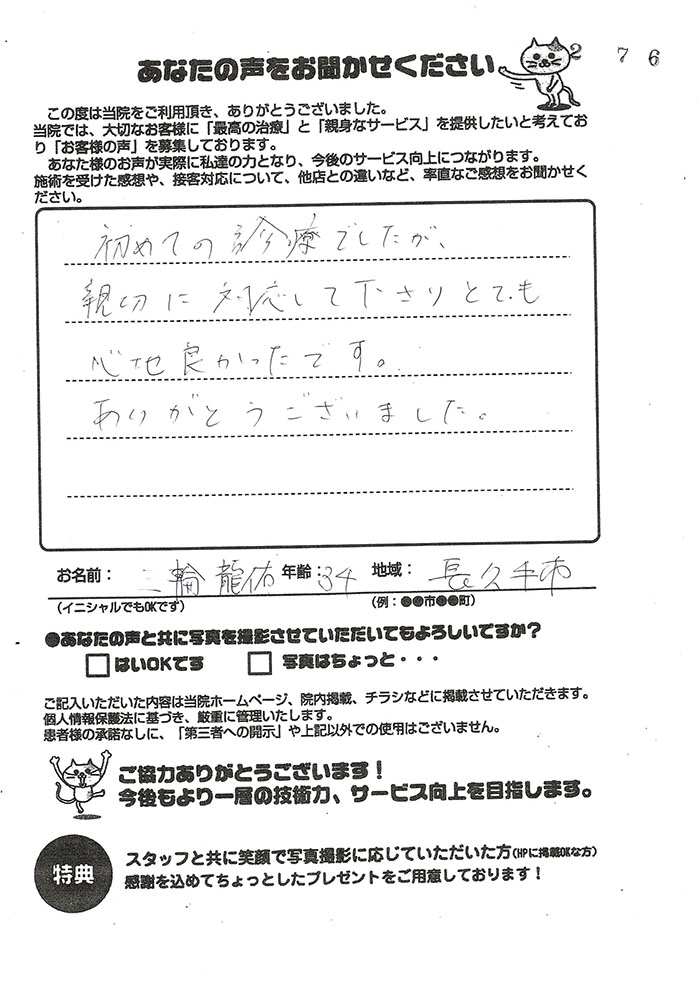 2 7 6
あなたの声をお聞かせください
この度は当院をご利用頂き、ありがとうございました。
当院では、大切なお客様に「最高の治療」と「親身なサービス」を提供したいと考えてお
り「お客様の声」を募集しております。
あなた様のお声が実際に私達の力となり、今後のサービス向上につながります。
施術を受けた感想や、接客対応について、他店との違いなど、率直なご感想をお聞かせく
ださい。
初めての診療でしたが、
親切に対応して下さりとても
心地良かったです。
ありがとうございました。
お名前： 三輪龍佑 年齢：34 地域： 長久手市
（イニシャルでもOKです） （例：●●市●●町）
●あなたの声と共に写真を撮影させていただいてもよろしいですか？
□はいOKです □写真はちょっと・・・
ご記入いただいた内容は当院ホームページ、院内掲載、チラシなどに掲載させていただきます。
個人情報保護法に基づき、厳重に管理いたします。
患者様の承諾なしに、「第三者への開示」や上記以外での使用はございません。
ご協力ありがとうございます！
今後もより一層の技術力、サービス向上を目指します。
特典
スタッフと共に笑顔で写真撮影に応じていただいた方（HPに掲載OKな方）
感謝を込めてちょっとしたプレゼントをご用意しております！